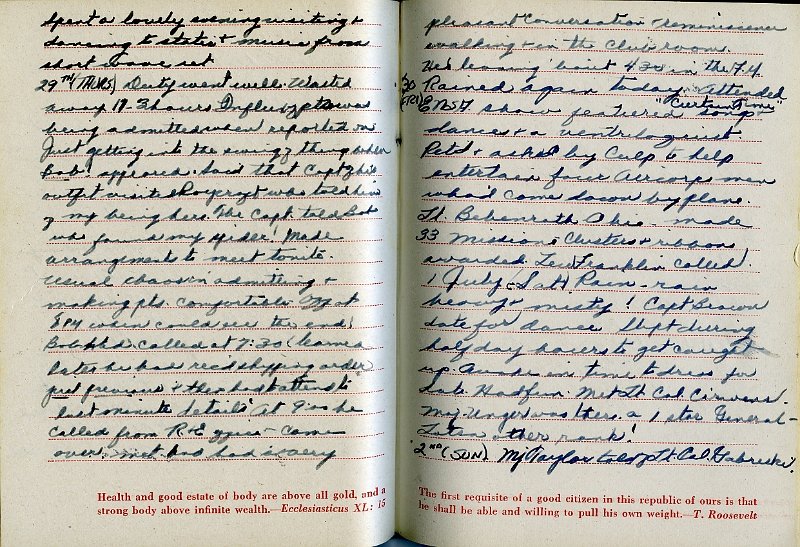 Spent a lovely evening visiting &
dancing to static & music from
short wave set
29TH (THURS) Duty went well. Wasted
away 11-3 hours. Influx of pts was
being admitted when reported on
Just getting into the swing of things when
Bob appeared. Said that Capt of his
outfit visited Roycroft who told him
of my being here. The Capt. told Bob
who found my Hider! Made
arrangements to meet tonite.
Usual chaos in admitting &
making pts. comfortable. Off at
8 PM when could see the end!
Bob called at 7:30 (learned
later he had rec'd shipping order
just previous & then had to attend to
last minute details. At 9:00 he
called from R&E & came
over. Met and had a very
Health and good estate of body are above all gold, and a
strong body above infinite wealth.—Ecclesiasticus XL: 15
pleasant conversation & reminiscence
walking & in the club room.
He's leaving bout 430 in the
30 Rained again today. Attended
(FRI) ENSA show featured "Curtain Time" songs
dances & a ventriloquist
Ret'd & asked by Culp to help
entertain four Aircorps men
who'd come down by plane.
Lt. Ohio - made
33 missions clusters & ribbons
awarded. Lew Franklin called.
1 July (Sat) Rain - rain
heavy & misty! Capt Brown
date for dance. Slept during
half day hours to get caught
up. Awoke in time to dress for
Had fun. Met Lt. Col.
Maj. Unger was there. a 1 star General-
other rank!
2ND (SUN). Maj Taylor told of Lt. Col.
The first requisite of a good citizen in this republic of ours is that
he shall be able and willing to pull his own weight.—T. Roosevelt